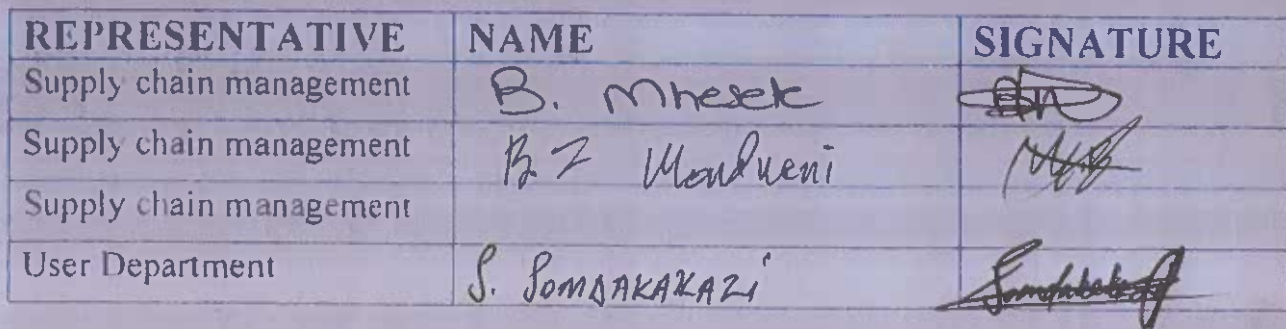 REPRESENTATIVE NAME SIGNATURE
Supply chain management B. Mhesek
Supply chain management BZ
Supply chain management
User Department S. SOMDAKAKAZI